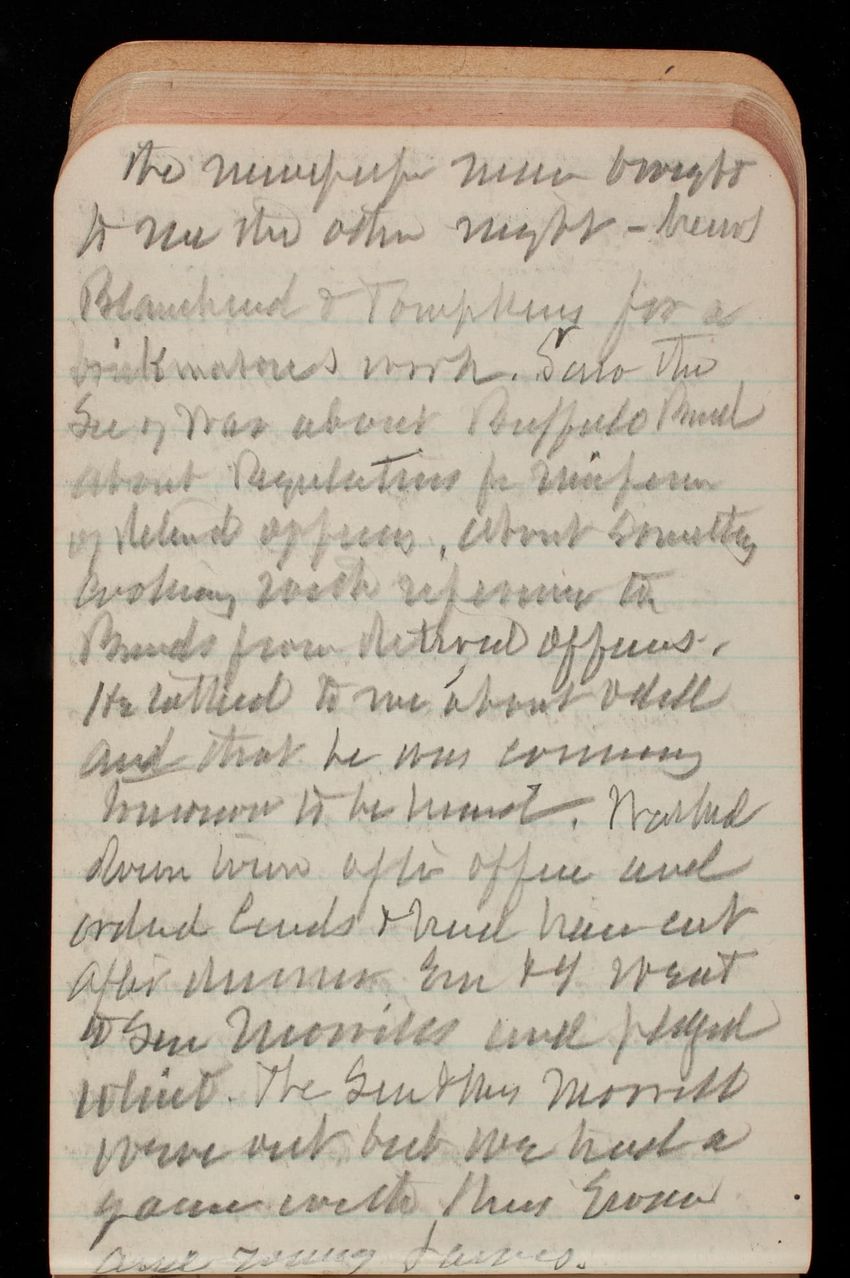 the newspaper man brought
to me the other night - 
Blanchard & Tompkins for a
work. Saw the
Sec of War about Buffalo Road
about Regulations for uniform
of officers, about something
with reference to
from retired officers.
He talked to me about Odell
and that he was coming
tomorrow to be heard. Walked
down town after office and
ordered cards & had hair cut
After dinner Em & I went
to Sen Morrills and played
whist. The Sen & Mrs Morrill
were out but we had a
game with Miss
and young James.